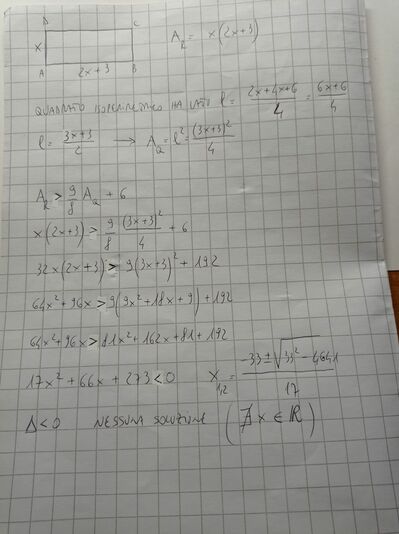 D C
A_R = x(2x+3)
x
A 2x+3 B
QUADRATO ISOPERIMETRICO HA LATO l = (2x+4x+6)/4 = (6x+6)/4
l = (3x+3)/2 → A_Q = l² = (3x+3)²/4
A_R > 9/8 A_Q + 6
x(2x+3) > 9/8 (3x+3)²/4 + 6
32x(2x+3) > 9(3x+3)² + 192
64x² + 96x > 9(9x² + 18x + 9) + 192
64x² + 96x > 81x² + 162x + 81 + 192
17x² + 66x + 273 < 0 x_1,2 = (-33 ± √(33² - 4641))/17
Δ < 0 NESSUNA SOLUZIONE (∄ x ∈ ℝ)